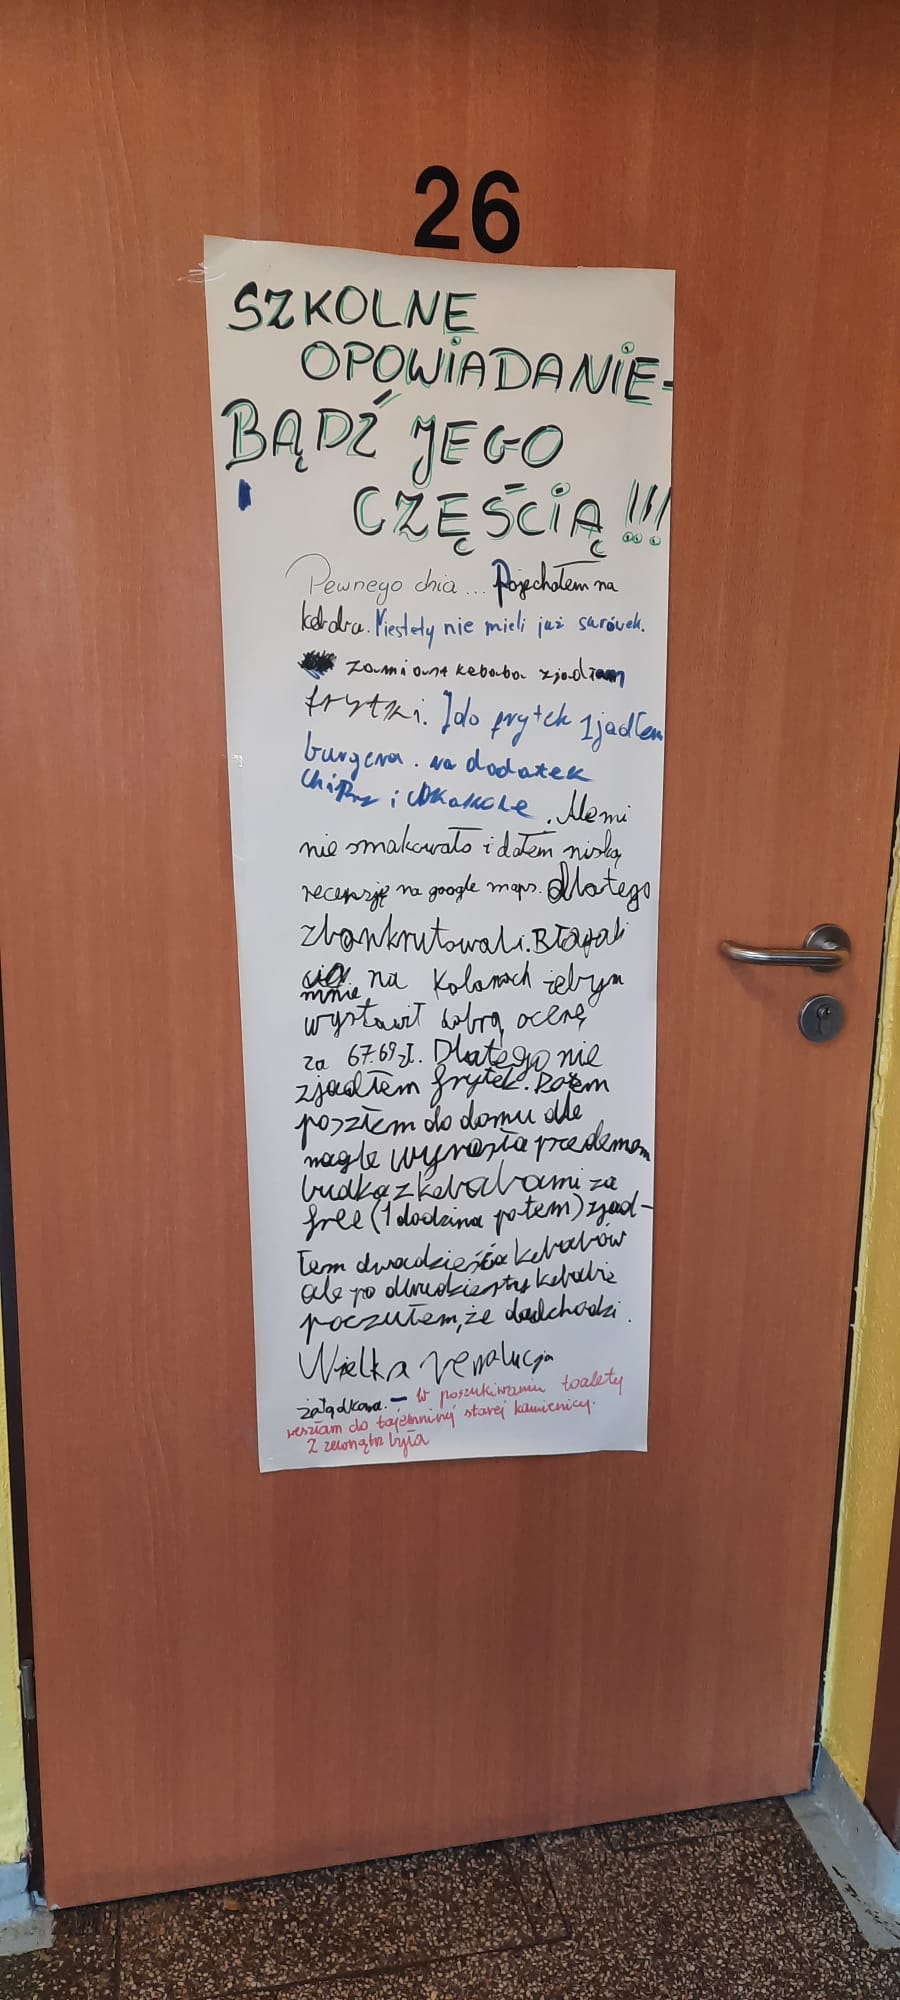 26
SZKOLNE
OPOWIADANIE-
BĄDŹ JEGO
CZĘŚCIĄ!!!
Pewnego dnia... Pojechałem na
kebaba. Niestety nie mieli już surówek.
zamiast kebaba zjadłam
frytki. I do frytek zjadłem
burgera. na dodatek
chipsy i
. Ale mi
nie smakowało i dałem niską
recenzję na google maps. dlatego
zbankrutowali. Błagali
mnie na kolanach żebym
wystawił dobrą ocenę
za 67.69zł. Dlatego nie
zjadłem frytek. Potem
poszłem do domu ale
nagle wyrosła przedemom
budka z kebabami za
free (1 dodzina potem) zjad-
łem dwadzieścia kebabów
ale po dwudziestym kebabie
poczułem, że nadchodzi.
Wielka rewolucja
żołądkowa. - W poszukiwaniu toalety
weszłam do tajemniczej starej kamienicy.
Z zewnątrz była